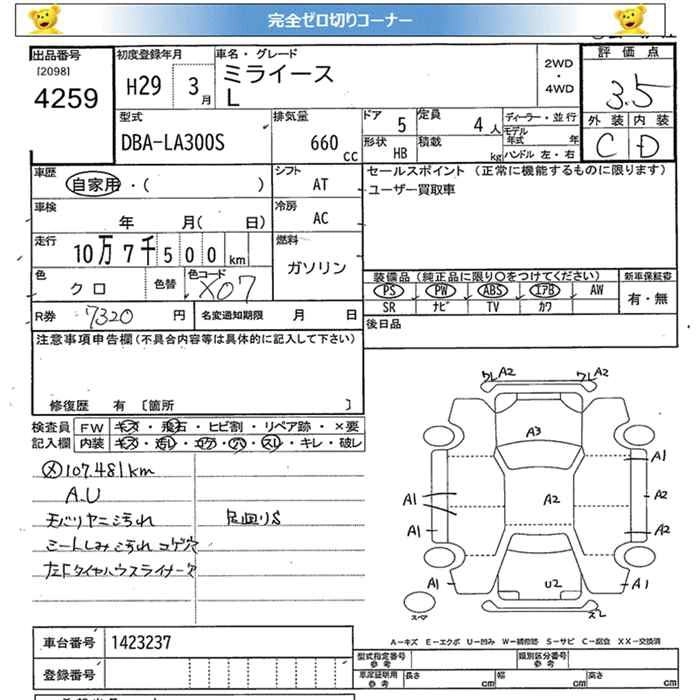 完全ゼロ切りコーナー
出品番号 [2098] 4259
初度登録年月 H29 3月
車名・グレード ミライース L
2WD・4WD
評価点 3.5
外装 C 内装 D
型式 DBA-LA300S
排気量 660 cc
ドア 5 定員 4人
形状 HB 積載 kg
ディーラー・並行
モデル年式 年
ハンドル 左・右
車歴 自家用・( )
シフト AT
セールスポイント (正常に機能するものに限ります)
ユーザー買取車
車検 年 月( 日)
冷房 AC
走行 10万7千500km
燃料 ガソリン
色 クロ 色替 色コード X07
装備品 (純正品に限り○をつけてください) 新車保証書
PS PW ABS エアB AW 有・無
SR ナビ TV カワ
R券 7320 円 名変通知期限 月 日
後日品
注意事項申告欄 (不具合内容等は具体的に記入して下さい)
修復歴 有 [箇所 ]
検査員記入欄
FW キズ・飛石・ヒビ割・リペア跡・×要
内装 キズ・汚レ・コゲ・穴・スレ・キレ・破レ
107.481km
A.U
モバリヤニこうれ 足回りS
シートしみこうれ コゲ穴
左Fタイヤハウスライナーア
ワレ A2 ワレ A2
A3
A1 A1
A1 A2 A2
A1 A2
A1 U2 A1
スペア スレ
A−キズ E−エクボ U−凹み W−補修跡 S−サビ C−腐食 XX−交換済
車台番号 1423237
登録番号
型式指定番号 参考 類別区分番号 参考
車庫証明用 参考 長さ cm 幅 cm 高さ cm